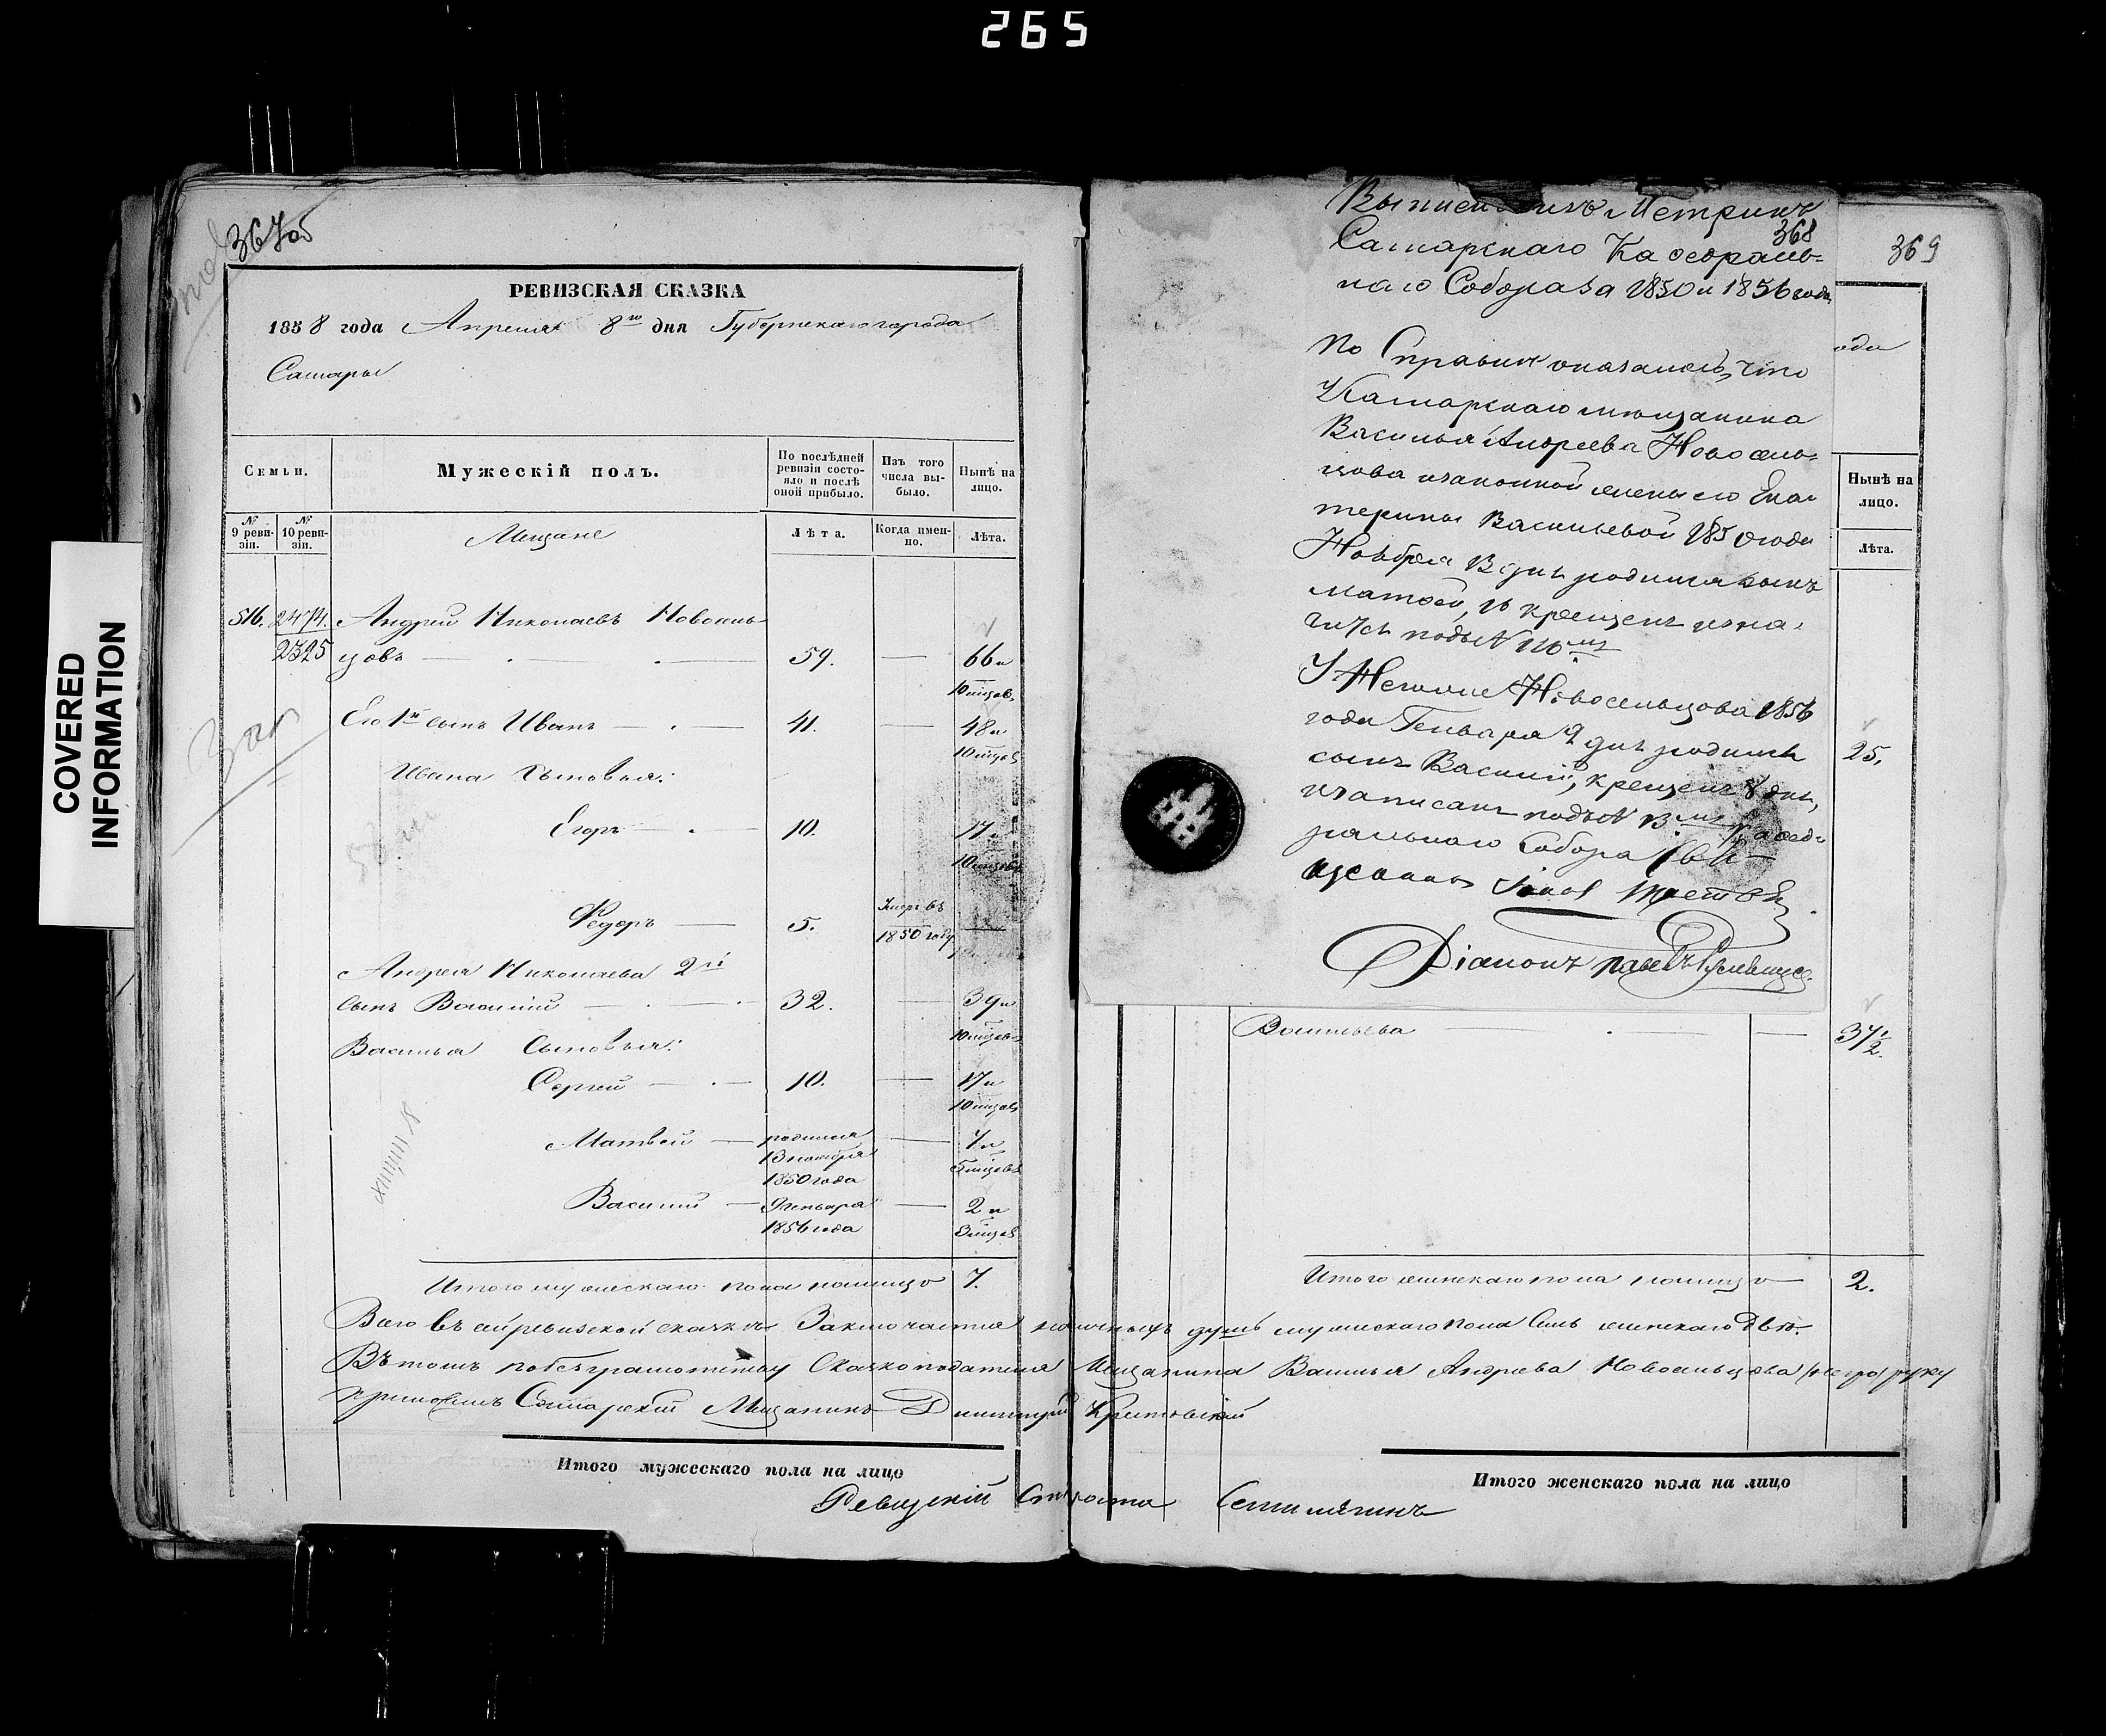 265
COVERED
INFORMATION
367об
РЕВИЗСКАЯ СКАЗКА
1858 года Апреля 8го дня Губернскаго города
Самары
Семьи.
Мужескій полъ.
По послѣдней ревизіи состояло и послѣ оной прибыло.
Изъ того числа выбыло.
Нынѣ на лицо.
№ 9 ревизіи.
№ 10 ревизіи.
Мещане
Лѣта.
Когда именно.
Лѣта.
516. 2474. Андрей Николаевъ Новосель-
2325 цовъ — 59. — 66 и
10 мѣцов
Его 1й сынъ Иванъ — 41. — 48 и
10 мѣцов
Ивана Сыновья:
Егоръ — 10. 17 и
10 мѣцов
Федоръ — 5. Умеръ въ 1850 году —
Андрея Николаева 2й
сынъ Василій — 32. — 39 и
10 мѣцов
Василья Сыновья:
Сергей — 10. — 17 и
10 мѣцов
Матвей — родился 13 ноября 1850 года — 7 и
5 мѣцов
Василий — 9 генваря 1856 года — 2 и
3 мѣцов
Итого мужескаго пола налицо 7.
Всего въ сей ревизской сказке Заключается наличныхъ душъ мужескаго пола Семь женскаго Двѣ.
Въ томъ по безграмотству Сказкоподателя Мещанина Василья Андреева Новосельцова руку
приложилъ Самарскій Мещанинъ Дмитрий
Итого мужескаго пола на лицо
Ревизскій Староста
Выписка изъ Метрикъ
368
Самарскаго Каѳедраль-
наго Собора за 1850 и 1856 года
По Справке оказалось, что
Самарскаго мещанина
Василья Андреева Новосель-
цова и законной жены его Ека-
терины Васильевой 1850 года
Ноября 13 дня родился сынъ
Матвей, 16 крещенъ и зна-
чится подъ № 110мъ
У Негоже Новосельцова 1856
года Генваря 9 дня родился
сынъ Василий, крещенъ 8 дня,
и записанъ подъ № 13мъ Каѳед-
ральнаго Собора Свя-
щенникъ
Діаконъ Павелъ
369
ода
Нынѣ на лицо.
Лѣта.
25.
Васильева — 37½.
Итого женскаго пола налицо — 2.
Итого женскаго пола на лицо